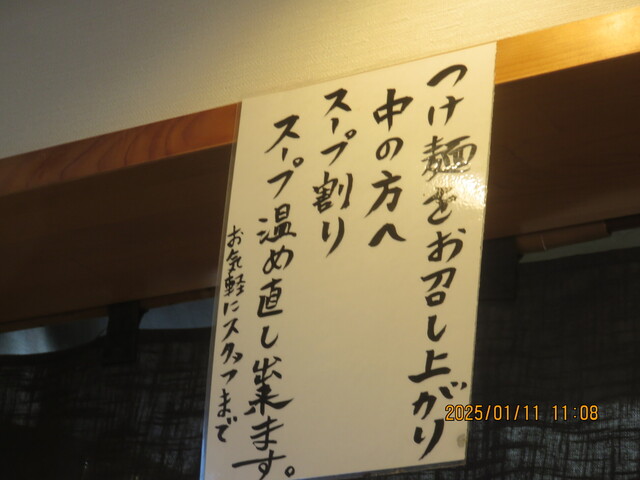 つけ麺をお召し上がり
中の方へ
スープ割り
スープ温め直し出来ます。
お気軽にスタッフまで
2025/01/11 11:08